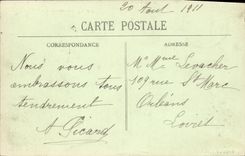 20 Aout 1911
CARTE POSTALE
CORRESPONDANCE
ADRESSE
Nous vous
embrassons tous
tendrement
A. Picard
Mr Mme Levacher
109 rue St Marc
Orléans
Loiret